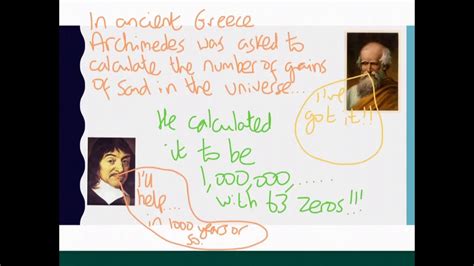 In ancient Greece
Archimedes was asked to
calculate the number of grains
of sand in the universe....
I've
got it!!
He calculated
it to be
1,000,000,......
with 63 zeros!!!
I'll
help...
in 1000 years or
so.